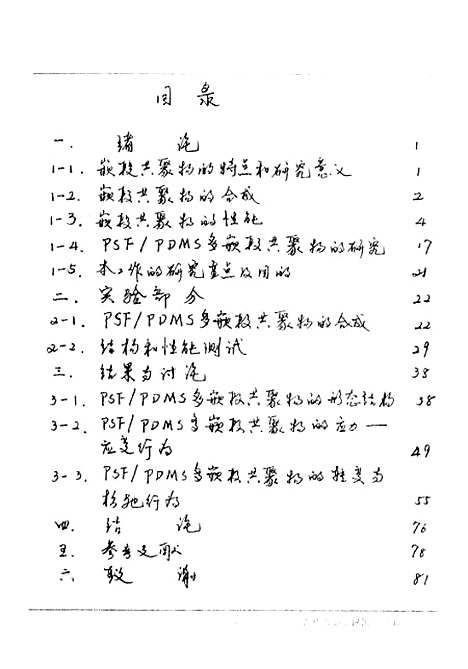 目 录
一. 绪 论 1
1-1. 嵌段共聚物的特点和研究意义 1
1-2. 嵌段共聚物的合成 2
1-3. 嵌段共聚物的性能 4
1-4. PSF/PDMS多嵌段共聚物的研究 17
1-5. 本工作的研究重点及目的 21
二. 实验部分 22
2-1. PSF/PDMS多嵌段共聚物的合成 22
2-2. 结构和性能测试 29
三. 结果与讨论 38
3-1. PSF/PDMS多嵌段共聚物的形态结构 38
3-2. PSF/PDMS多嵌段共聚物的应力—
应变行为 49
3-3. PSF/PDMS多嵌段共聚物的转变与
松弛行为 55
四. 结 论 76
五. 参考文献 78
六. 致 谢 81